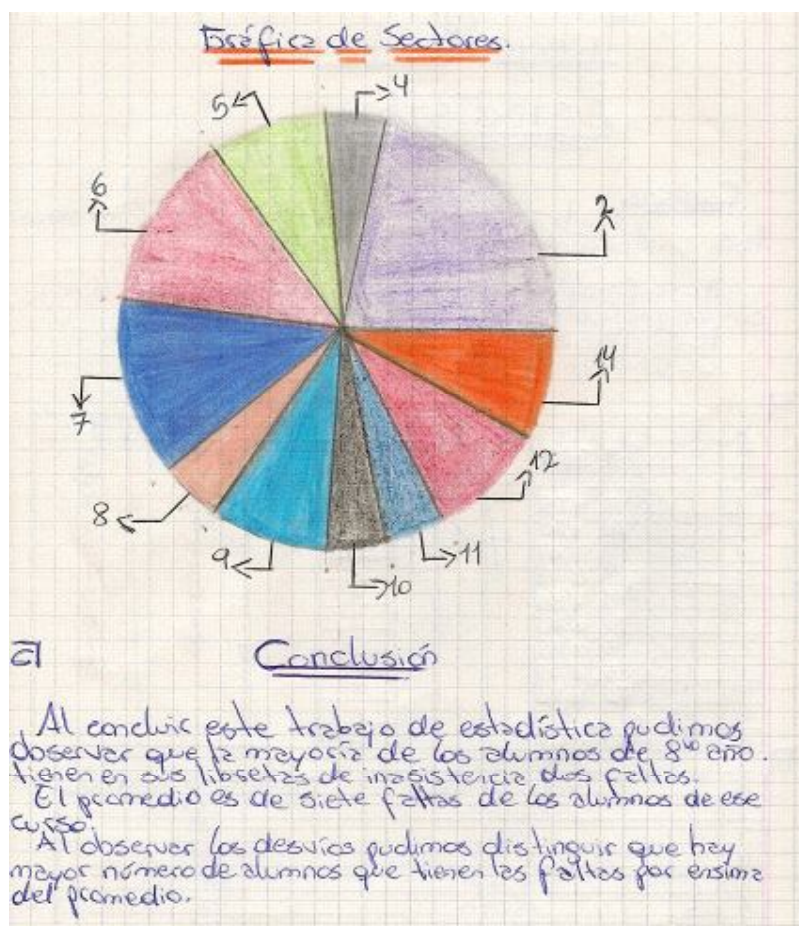 Gráfica de Sectores.
4
5
2
6
14
7
12
8
11
9
10
a)
Conclusión
Al concluir este trabajo de estadística pudimos
observar que la mayoría de los alumnos de 8vo año.
tienen en sus libretas de inasistencia dos faltas.
El promedio es de siete faltas de los alumnos de ese
curso.
Al observar los desvíos pudimos distinguir que hay
mayor número de alumnos que tienen las faltas por ensima
del promedio.